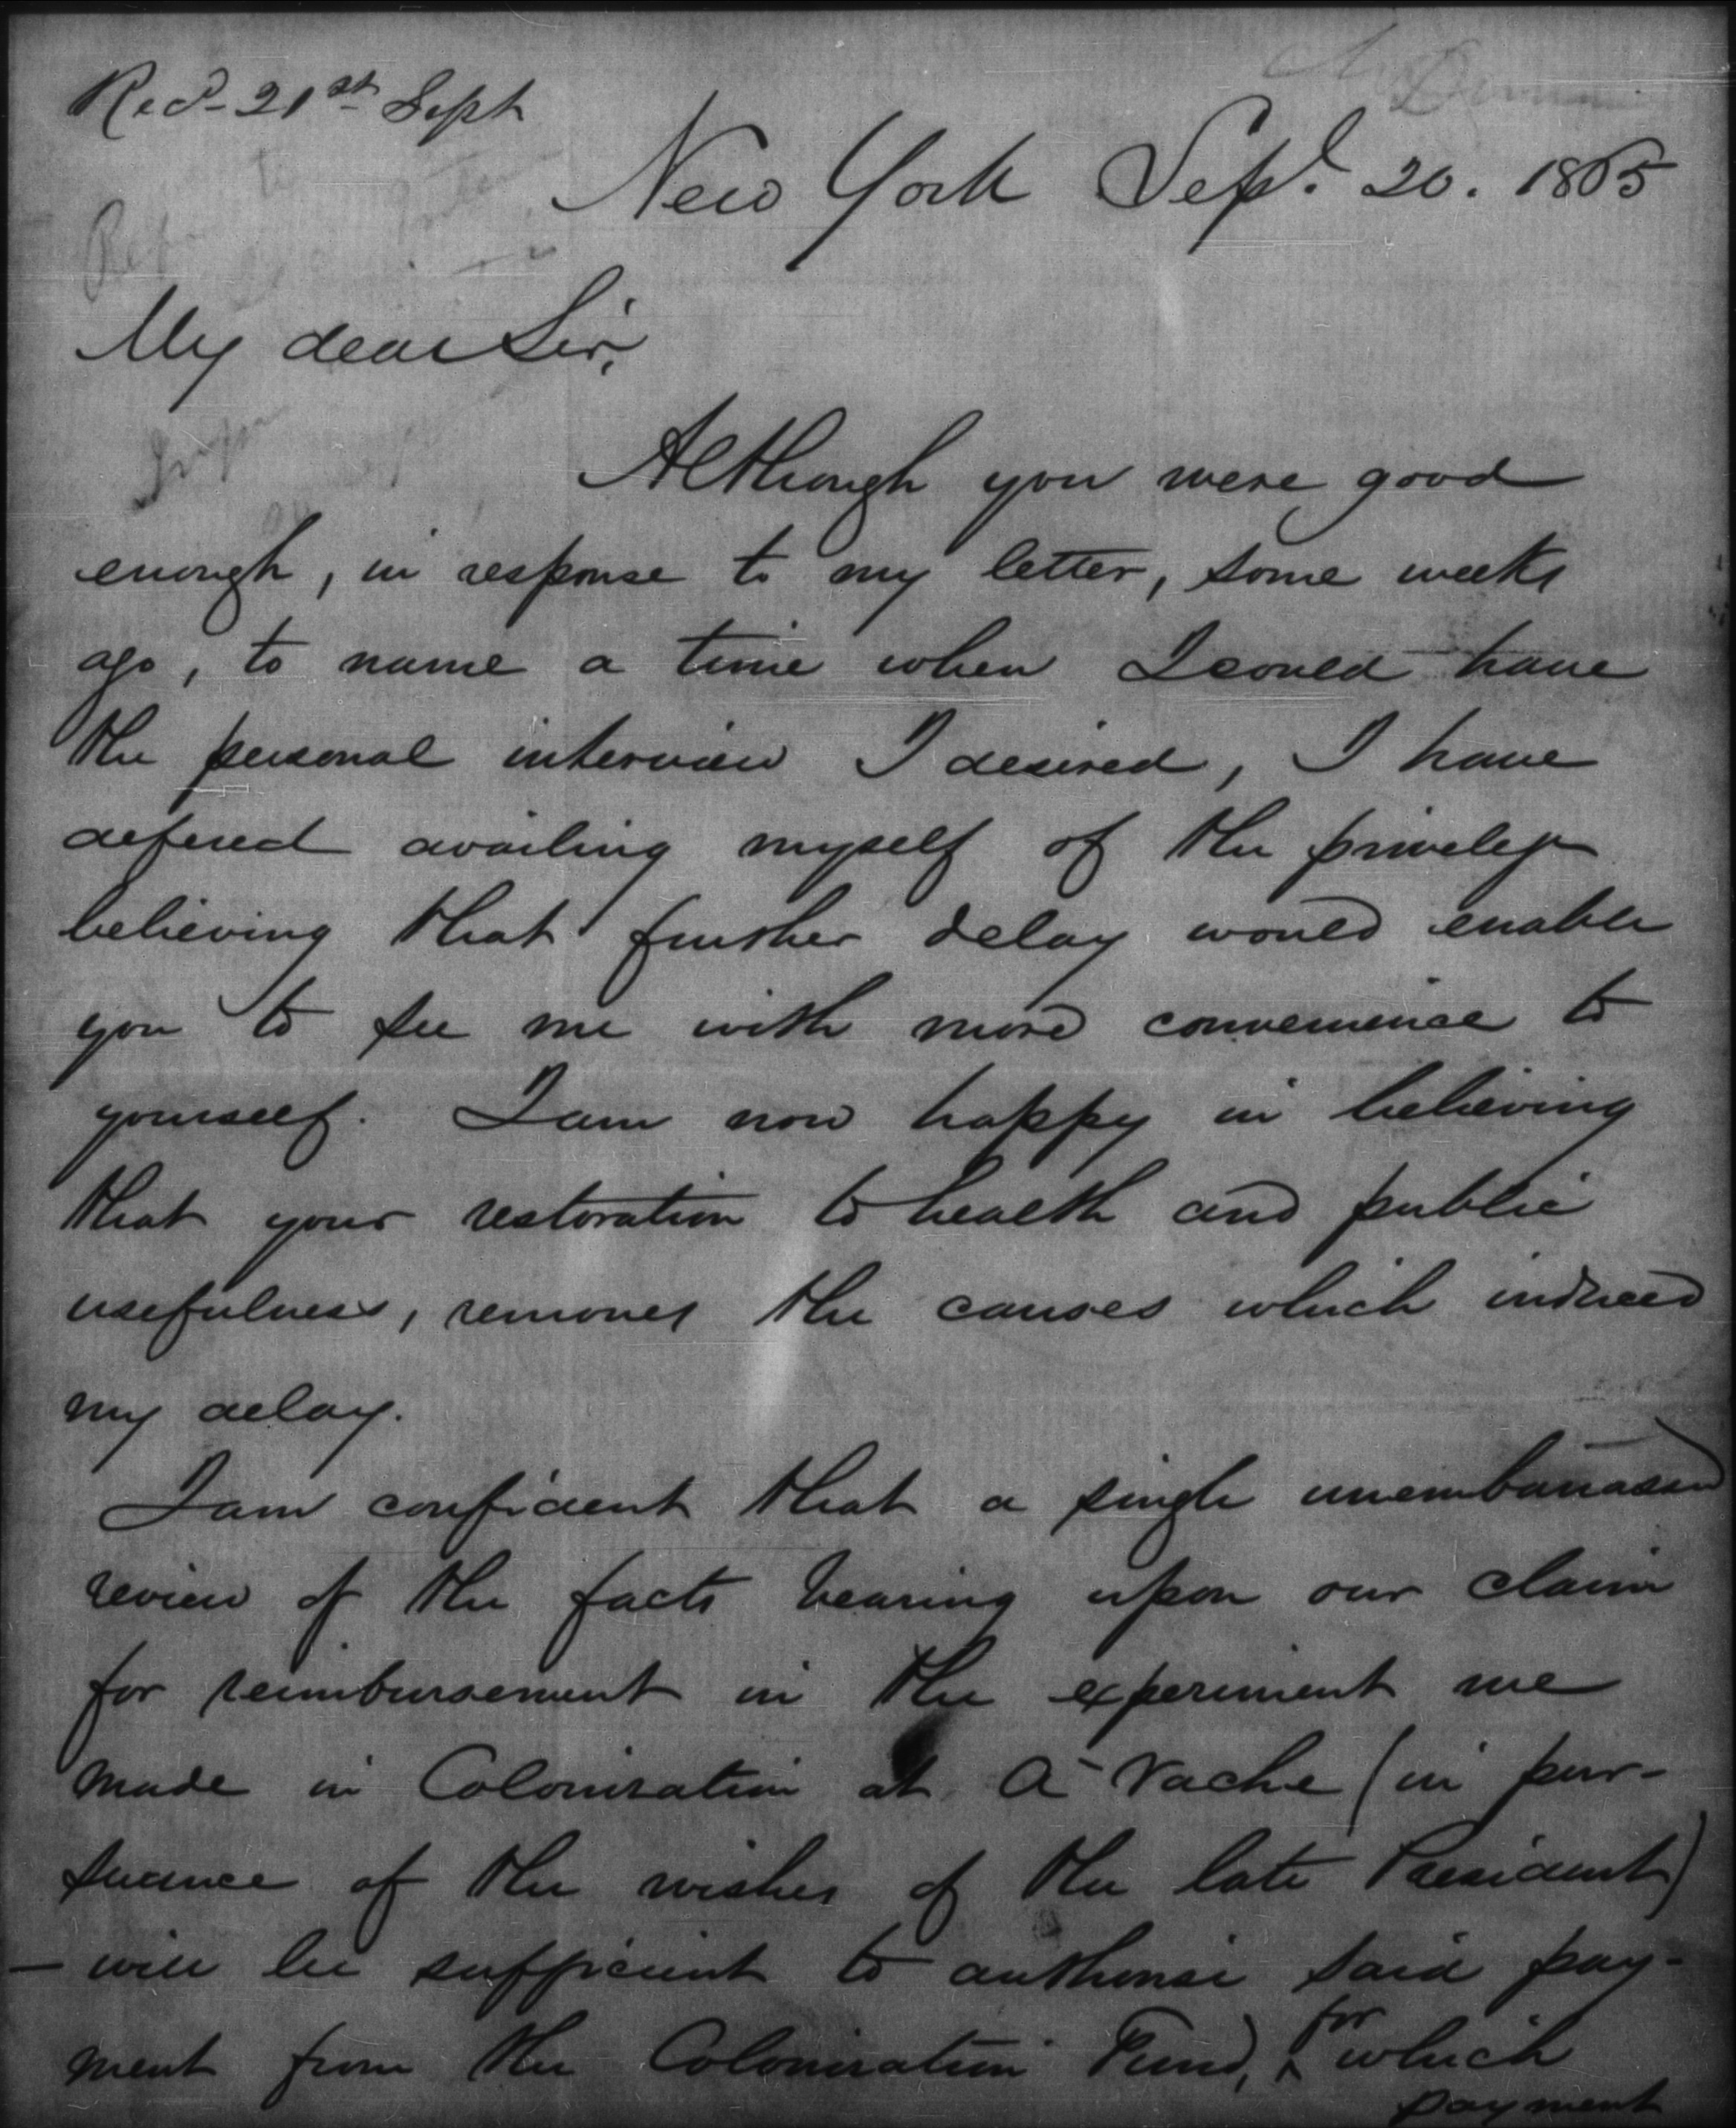 Rec'd 21st Sept
New York Sept. 20. 1865
My dear Sir,
Although you were good
enough, in response to my letter, some weeks
ago, to name a time when I could have
the personal interview I desired, I have
defered availing myself of the privelege
believing that further delay would enable
you to see me with more convenience to
yourself. I am now happy in believing
that your restoration to health and public
usefulness, removes the causes which induced
my delay.
I am confident that a single unembarrassed
review of the facts bearing upon our claim
for reimbursement in the experiment we
made in Colonization at A-Vache (in pur-
suance of the wishes of the late President)
- will be sufficient to authorise said pay-
ment from the Colonization Fund, for which
payment